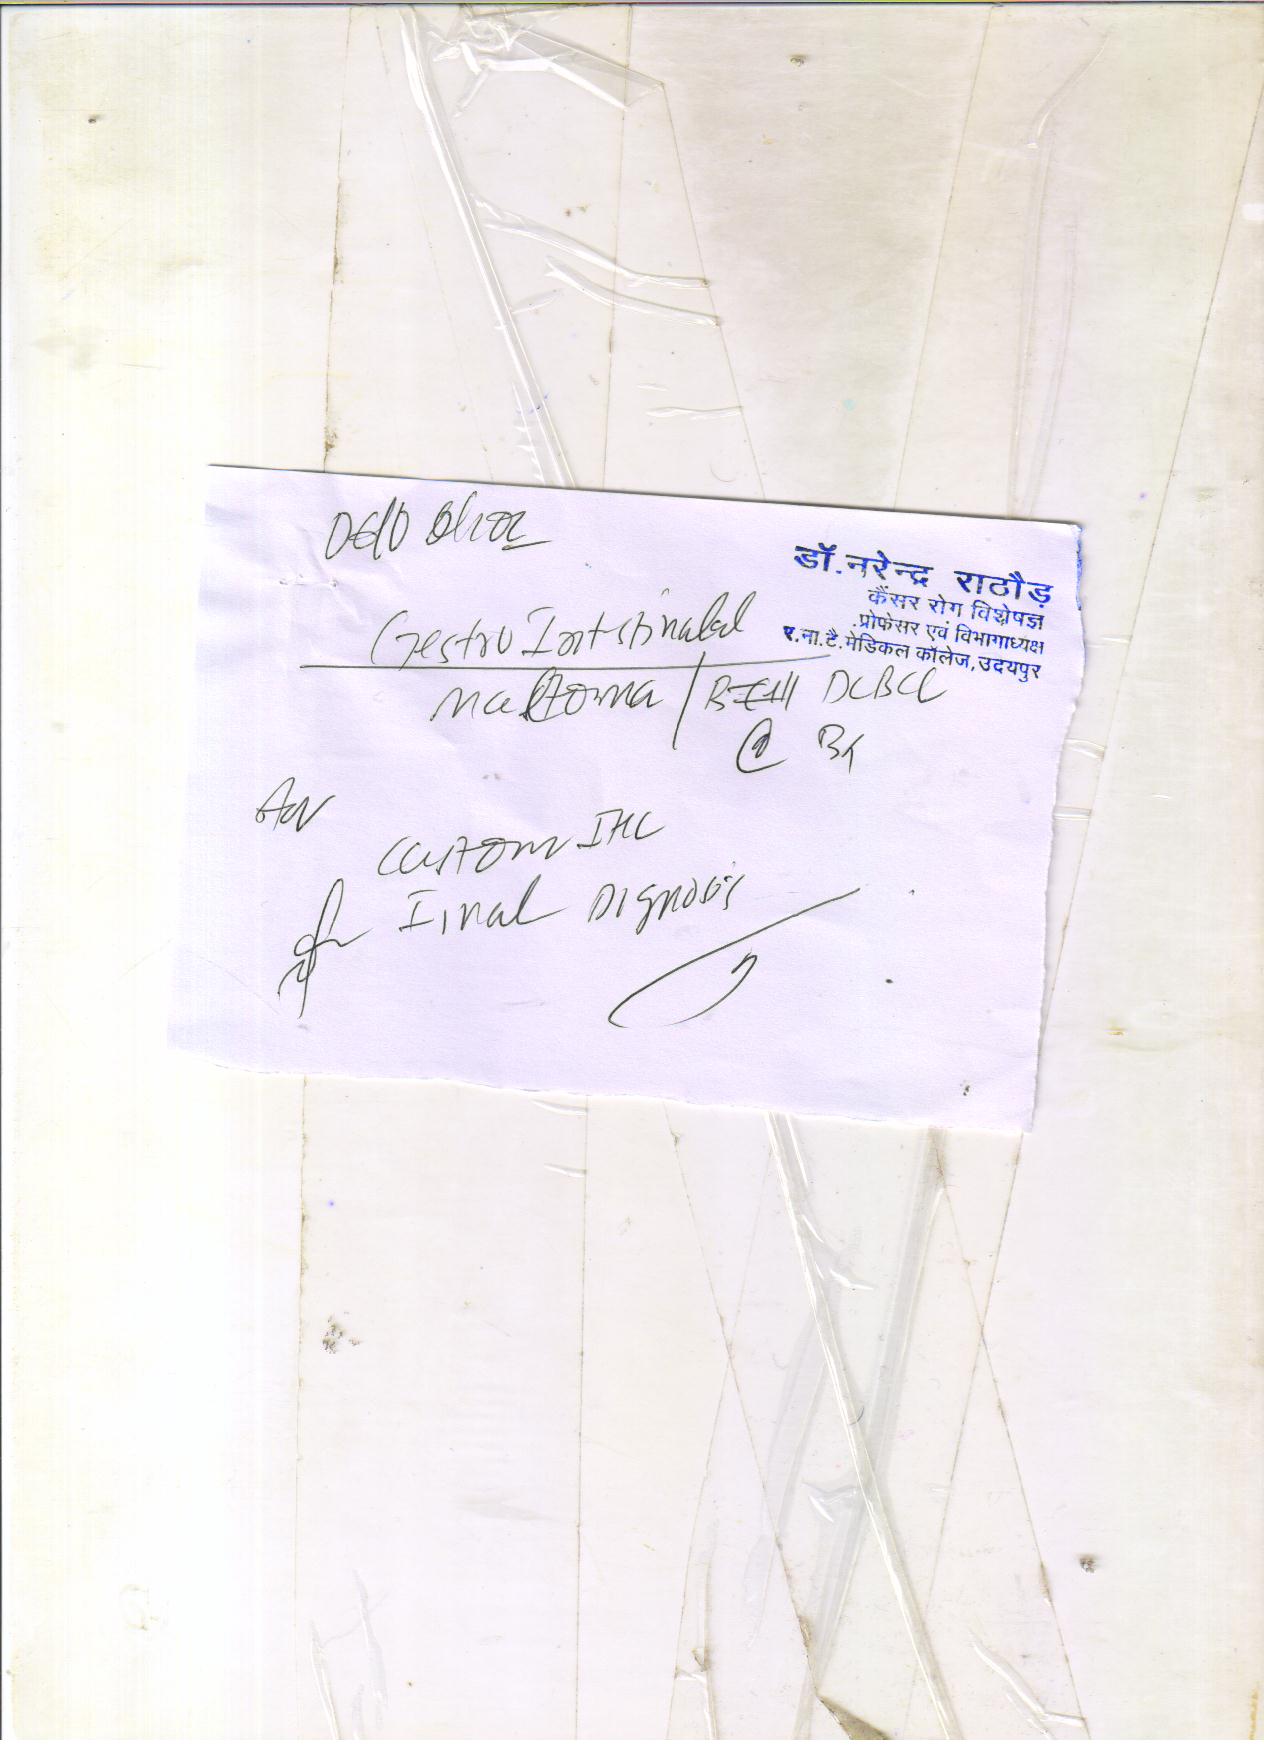 डॉ. नरेन्द्र राठौड़
कैंसर रोग विशेषज्ञ
प्रोफेसर एवं विभागाध्यक्ष
र.ना.टै.मेडिकल कॉलेज,उदयपुर
Gestro Intstinalal
maltoma / DLBCL
@
Adv
custom IHC
Final Dignosis